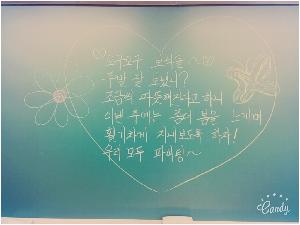 주말 잘 보냈니?
조금씩 따뜻해진다고 하니
이번 주에는 좀더 봄을 느끼며
활기차게 지내보도록 하자!
우리 모두 파이팅~
Candy